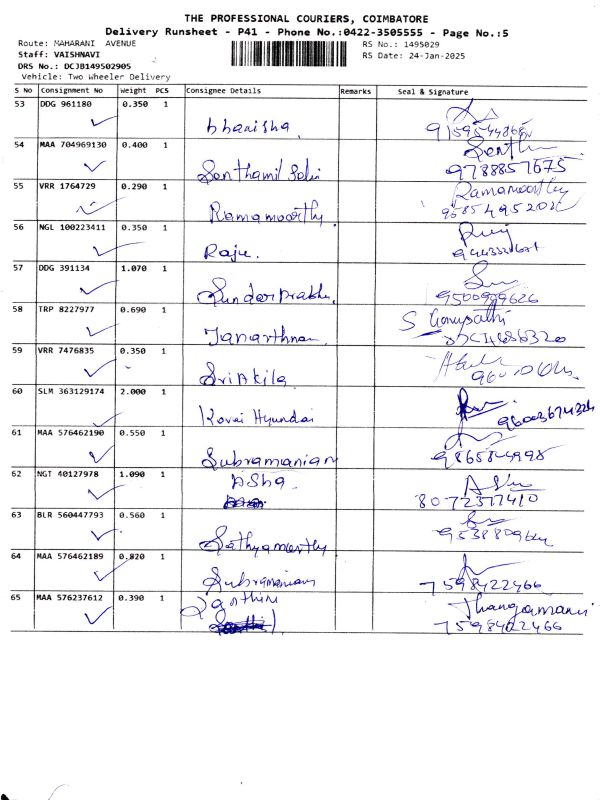 THE PROFESSIONAL COURIERS, COIMBATORE
Delivery Runsheet - P41 - Phone No.:0422-3505555 - Page No.:5
Route: MAHARANI AVENUE
RS No.: 1495029
Staff: VAISHNAVI
RS Date: 24-Jan-2025
DRS No.: DCJB149502905
Vehicle: Two Wheeler Delivery
S No Consignment No Weight PCS Consignee Details Remarks Seal & Signature
53 DDG 961180 0.350 1
bhanisha
54 MAA 704969130 0.400 1
Senthamil Selvi 9788857675
55 VRR 1764729 0.290 1 Ramamoorthy
Ramamoorthy.
56 NGL 100223411 0.350 1
Raju.
57 DDG 391134 1.070 1
Sundarprabhu. 9500999626
58 TRP 8227977 0.690 1 S Ganupathi
Janarthnan
59 VRR 7476835 0.350 1
Sri Akila
60 SLM 363129174 2.000 1
Kovai Hyundai
61 MAA 576462190 0.550 1
Subramanian 9865844998
62 NGT 40127978 1.090 1 Asha
8072377410
63 BLR 560447793 0.560 1
Sathyamoorthy
64 MAA 576462189 0.820 1
Subramanian 7598422466
65 MAA 576237612 0.390 1 Thangamani
7598422466